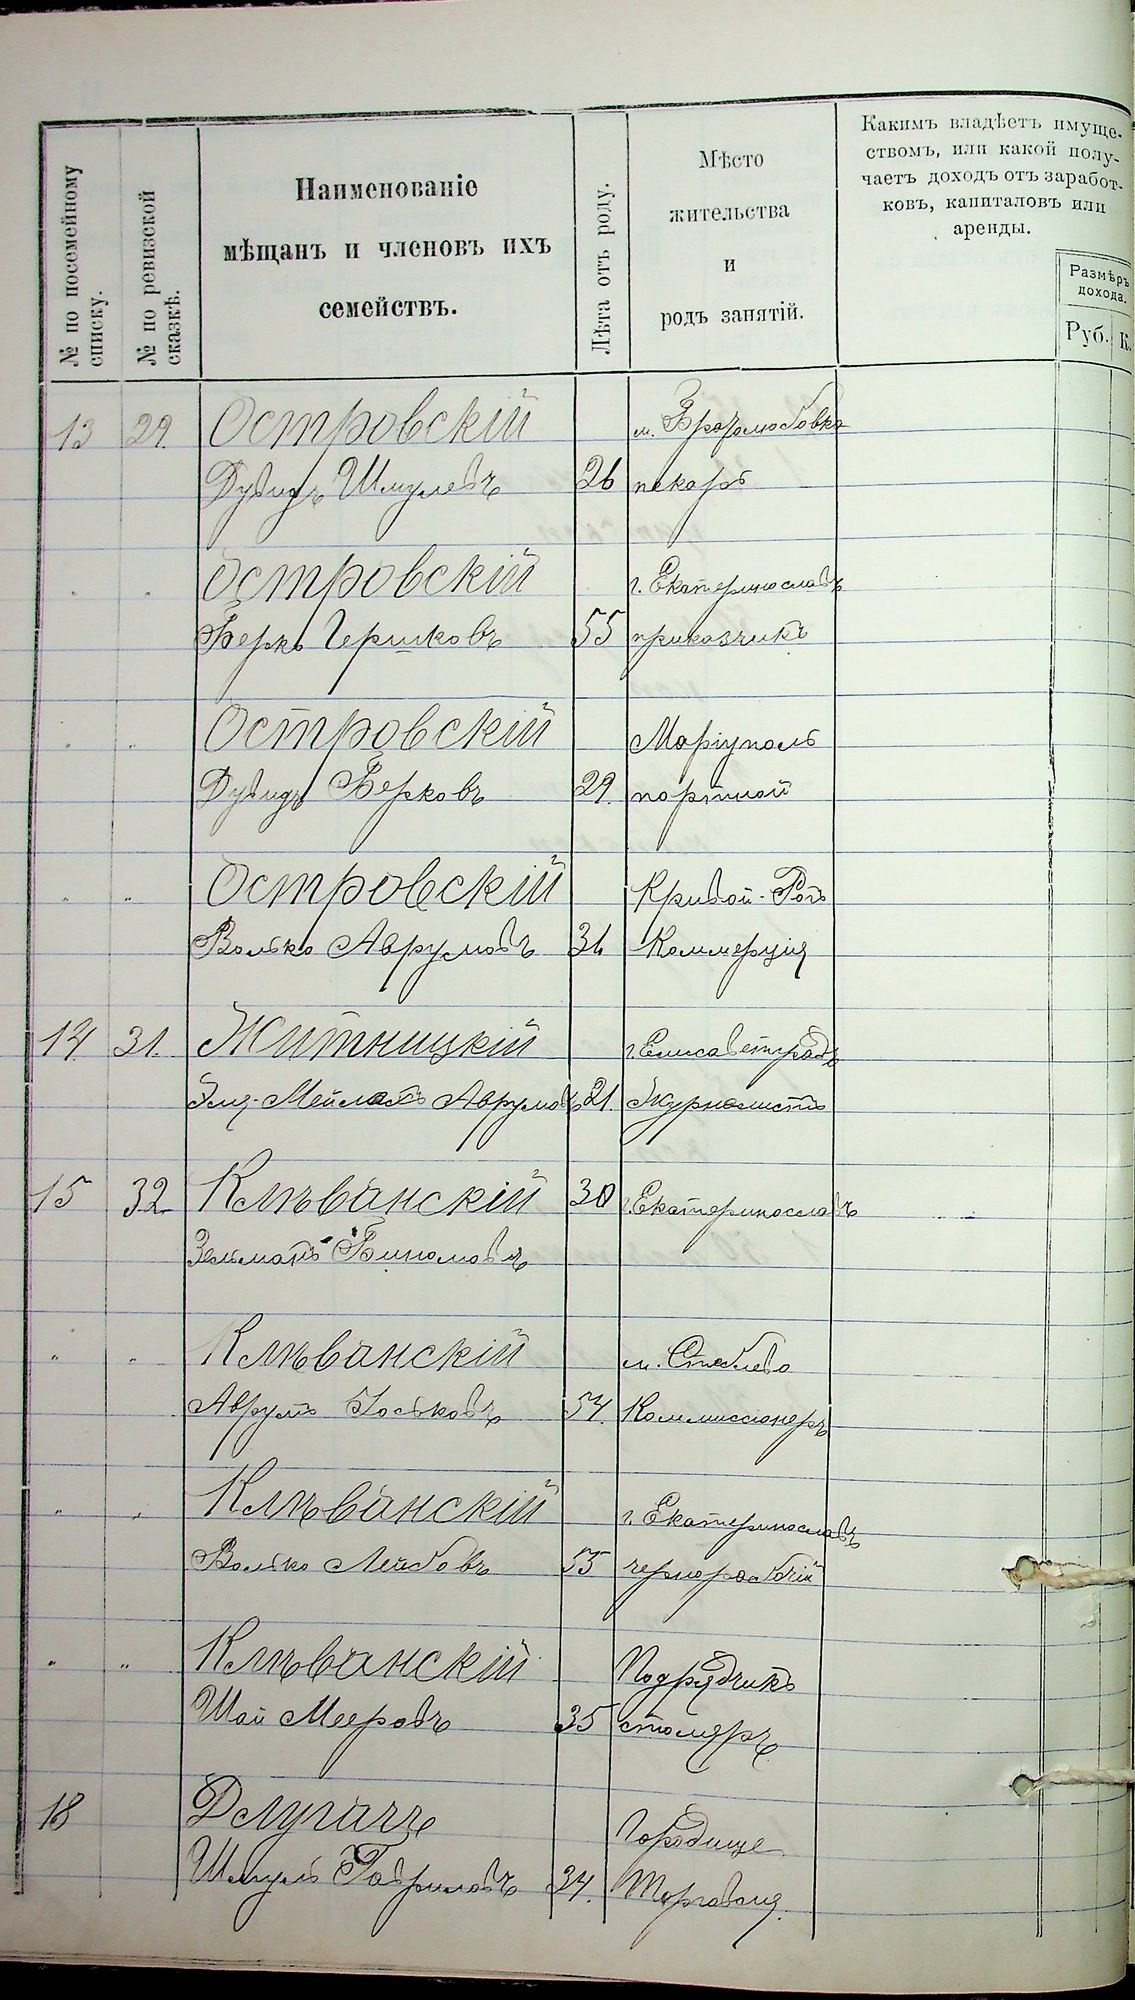 № по посемейному списку.
№ по ревизской сказкѣ.
Наименованіе
мѣщанъ и членовъ ихъ
семействъ.
Лѣта отъ роду.
Мѣсто
жительства
и
родъ занятій.
Какимъ владѣетъ имуще-
ствомъ, или какой полу-
чаетъ доходъ отъ заработ-
ковъ, капиталовъ или
аренды.
Размѣръ
дохода.
Руб. К.
13 29. Островскій м. Братолюбовка
Дувидъ Шмулевъ 26 пекарь
" " Островскій г. Екатеринославъ
Беркъ Гершковъ 55 приказчикъ
" " Островскій Маріуполь
Дувидъ Берковъ 29. портной
" " Островскій Кривой-Рогъ
Волько Аврумовъ 31 Коммерція
14 31. Житницкій г. Елисаветградъ
Мейлахъ Аврумовъ 21. Журналистъ
15 32 Клѣванскій 30 г. Екатеринославъ
Зельманъ Биномовъ
" " Клѣванскій м. Стеблево
Аврумъ Іоськовъ 54. Коммиссіонеръ
" " Клѣванскій г. Екатеринославъ
Волько Лейбовъ 53 чернорабочій
" " Клѣванскій Подрядчикъ
Шай Мееровъ 35 столяръ
18 Длугачъ Городище
Шмуль Гавриловъ 34. Торговля.